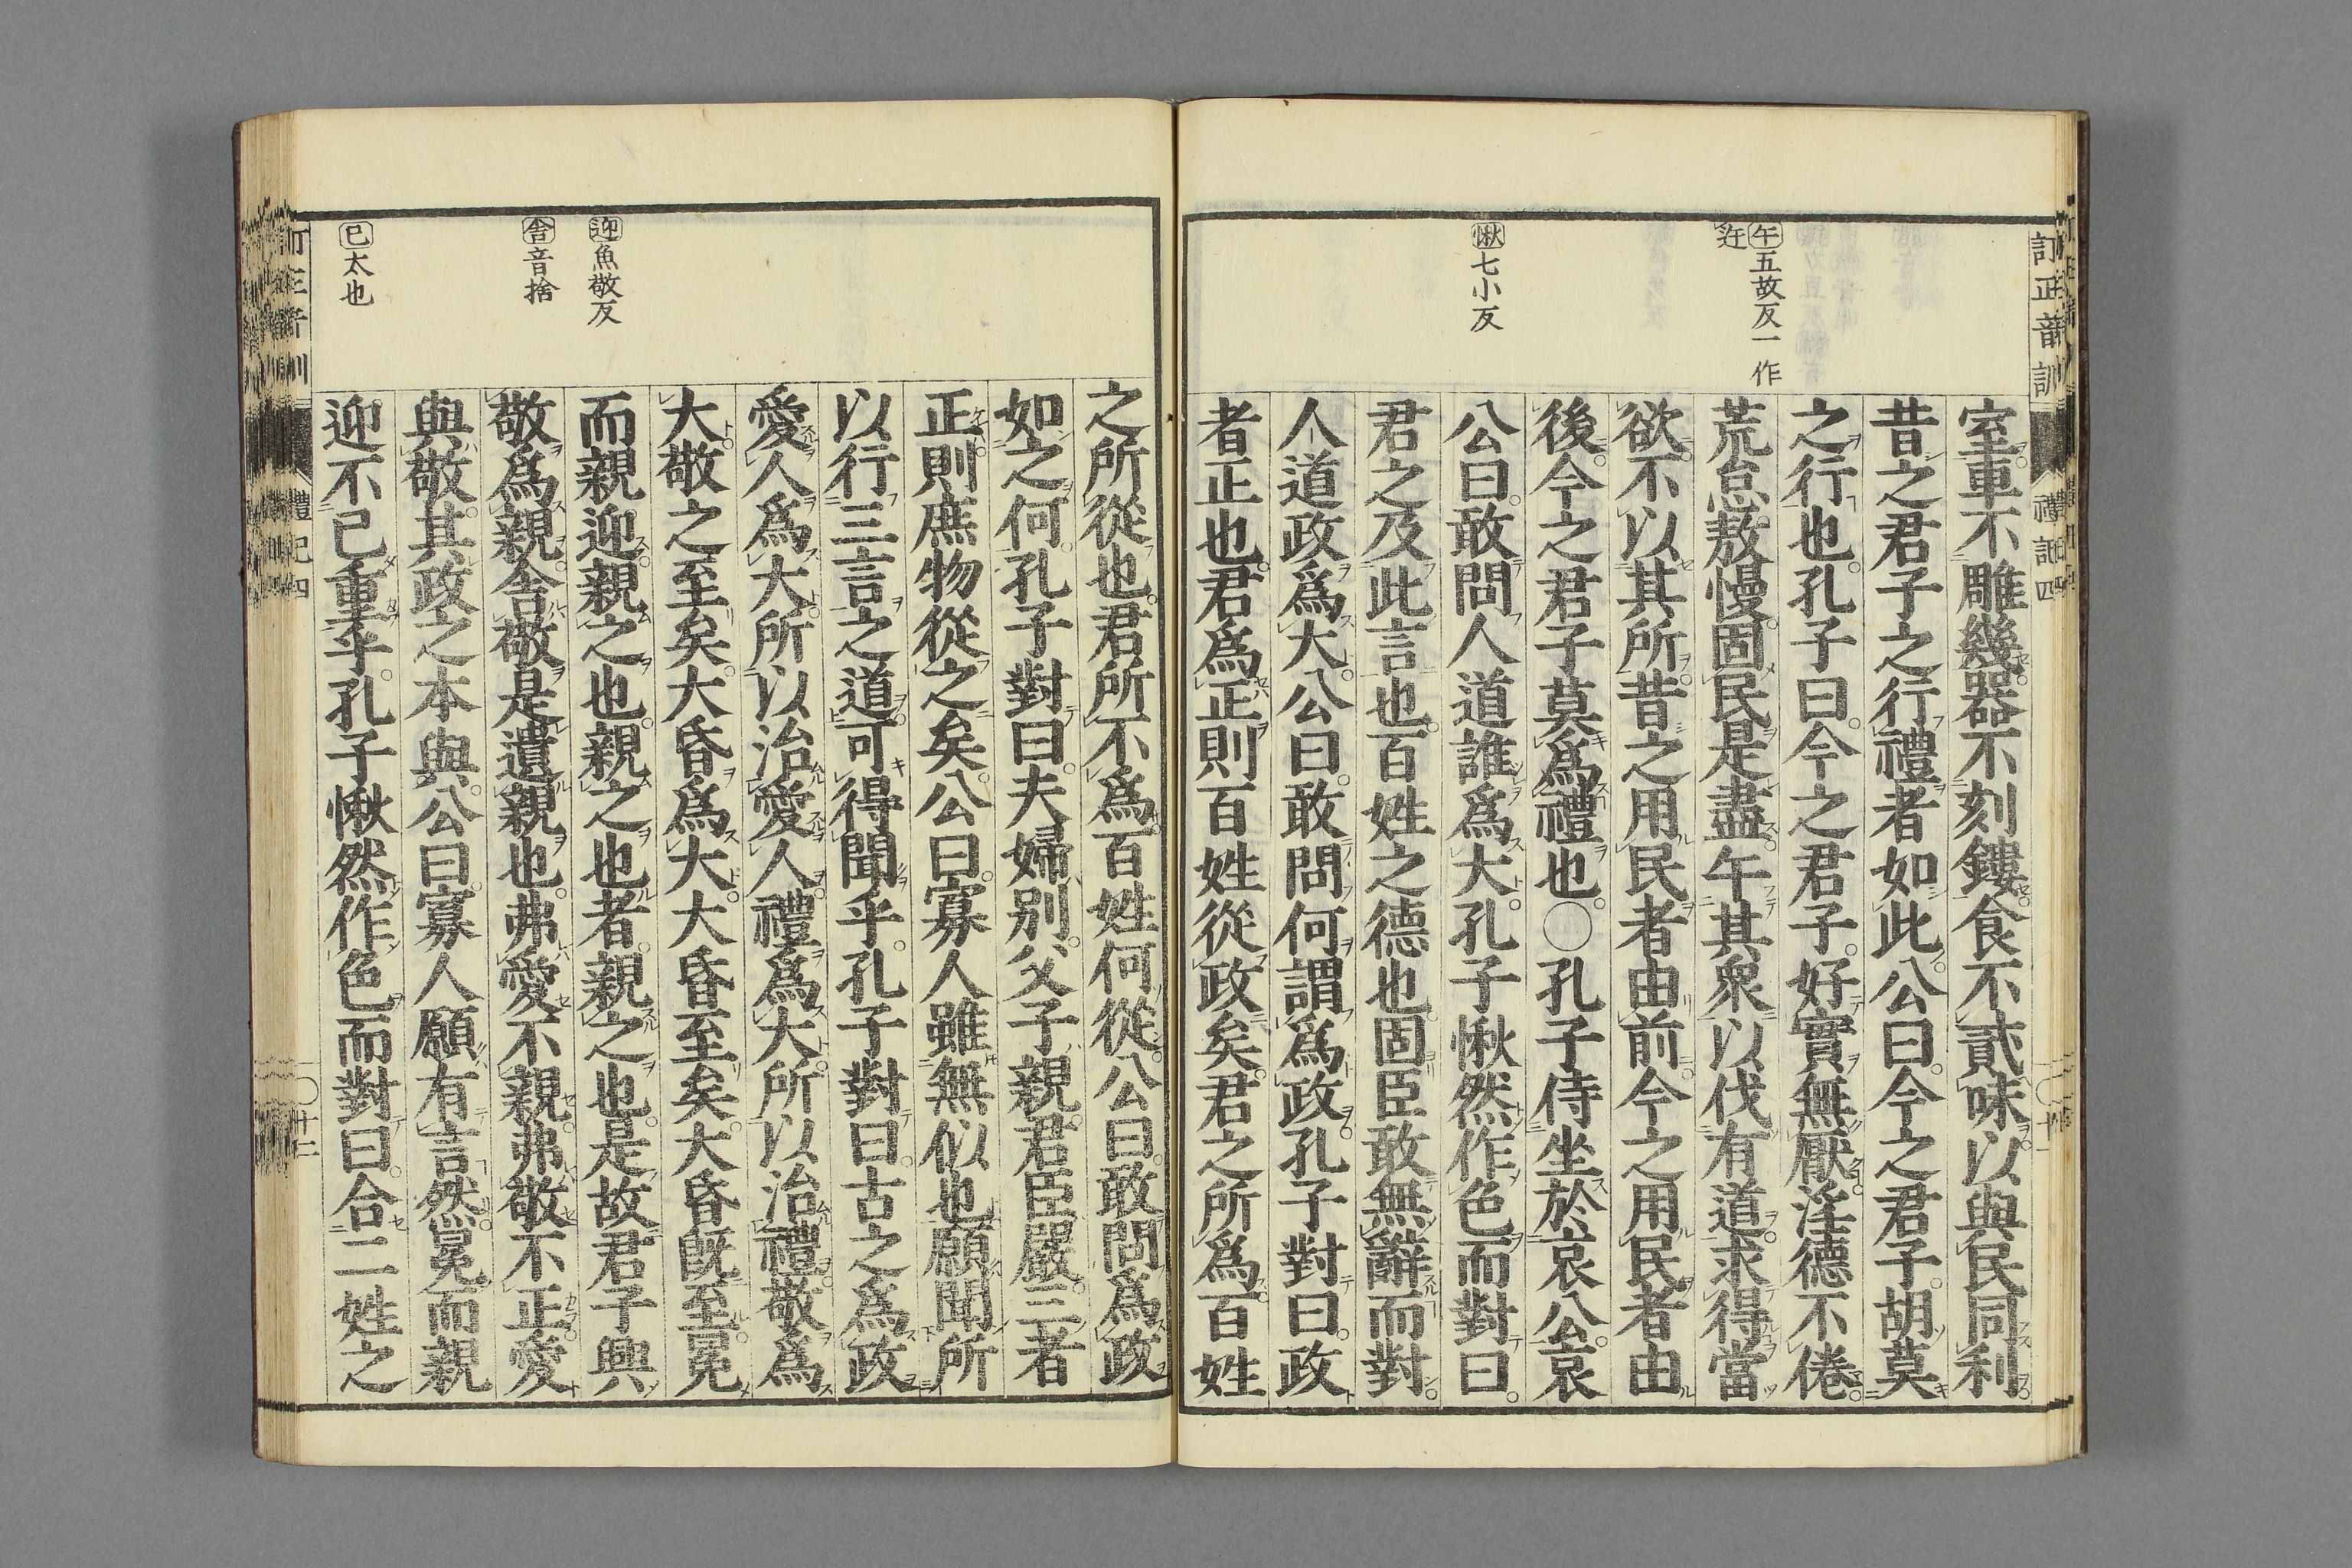 訂正音訓
禮記四
午五故反一作
迕
愀七小反
室車不雕幾器不刻鏤食不貳味以與民同利
昔之君子之行禮者如此公曰今之君子胡莫
之行也孔子曰今之君子好實無厭淫德不倦
荒怠敖慢固民是盡午其衆以伐有道求得當
欲不以其所昔之用民者由前今之用民者由
後今之君子莫爲禮也○孔子侍坐於哀公哀
公曰敢問人道誰爲大孔子愀然作色而對曰
君之及此言也百姓之德也固臣敢無辭而對
人道政爲大公曰敢問何謂爲政孔子對曰政
者正也君爲正則百姓從政矣君之所爲百姓
迎魚敬反
舍音捨
已太也
之所從也君所不爲百姓何從公曰敢問爲政
如之何孔子對曰夫婦別父子親君臣嚴三者
正則庶物從之矣公曰寡人雖無似也願聞所
以行三言之道可得聞乎孔子對曰古之爲政
愛人爲大所以治愛人禮爲大所以治禮敬爲
大敬之至矣大昏爲大大昏至矣大昏旣至冕
而親迎親之也親之也者親之也是故君子興
敬爲親舍敬是遺親也弗愛不親弗敬不正愛
與敬其政之本與公曰寡人願有言然冕而親
迎不已重乎孔子愀然作色而對曰合二姓之
訂正音訓
禮記四